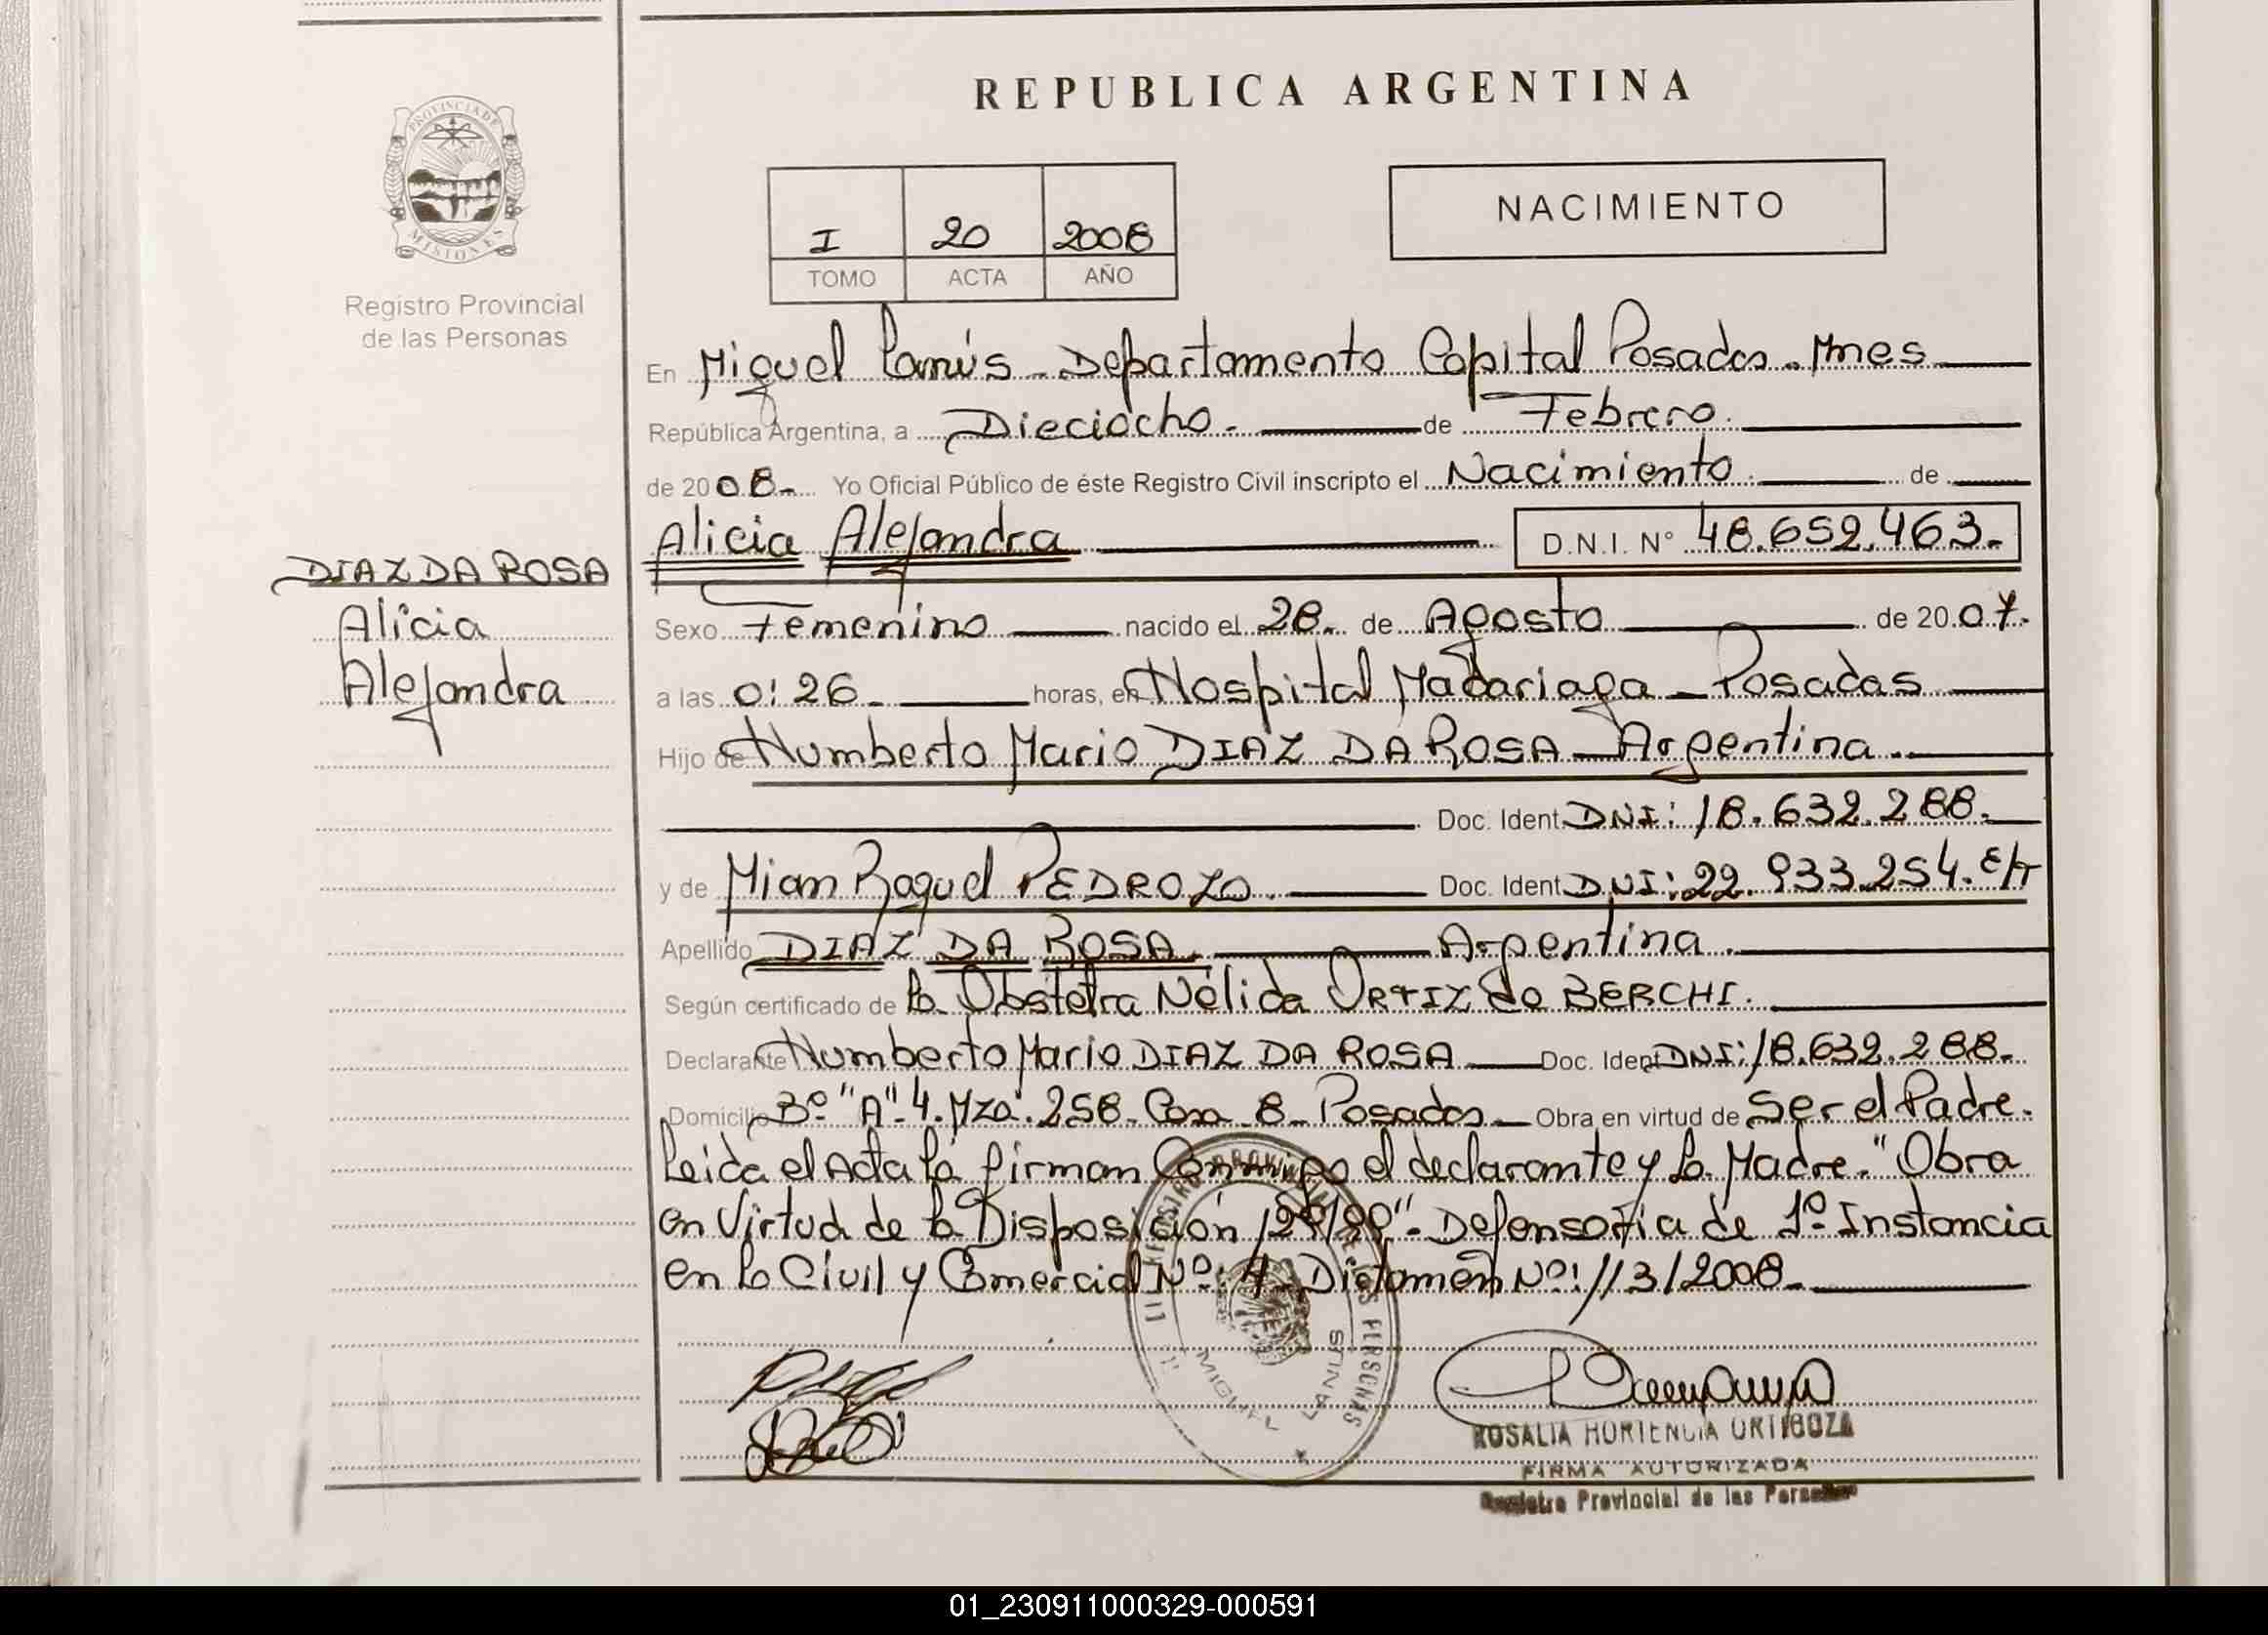 REPUBLICA ARGENTINA
PROVINCIA DE
MISIONES
Registro Provincial
de las Personas
I 20 2008
TOMO ACTA AÑO
NACIMIENTO
En Miguel Lanús - Departamento Capital Posadas - Mnes
República Argentina, a Dieciocho - de Febrero.
de 2008 - Yo Oficial Público de éste Registro Civil inscripto el Nacimiento. de
Alicia Alejandra D.N.I. N° 48.652.463.-
DIAZ DA ROSA
Alicia
Alejandra
Sexo Femenino nacido el 28 - de Agosto de 2007.
a las 0:26 - horas, en Hospital Madariaga - Posadas
Hijo de Humberto Mario DIAZ DA ROSA - Argentina.
Doc. Ident DNI: 18.632.288.
y de Miam Raquel PEDROZO. Doc. Ident DNI: 22.933.254.
Apellido DIAZ DA ROSA. Argentina.
Según certificado de la Obstetra Nélida ORTIZ de BERCHI.
Declarante Humberto Mario DIAZ DA ROSA Doc. Ident DNI: 18.632.288.
Domicilio Bº "A"-4. Mza. 258 - Casa 8 - Posadas Obra en virtud de Ser el Padre.
Leida el Acta la firman Conmigo el declarante y la Madre. "Obra
en Virtud de la Disposición /89" - Defensoría de 1º Instancia
en lo Civil y Comercial Nº: 4 - Dictamen Nº: 113/2008.
REGISTRO PROVINCIAL DE LAS PERSONAS
MIGUEL LANUS
ROSALIA HORTENCIA ORTIGOZA
FIRMA AUTORIZADA
Registro Provincial de las Personas
01_230911000329-000591